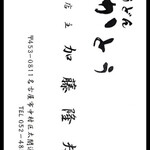 うどん
かとう
店主 加藤隆夫
〒453-0811名古屋市中村区太閤通
TEL 052-48